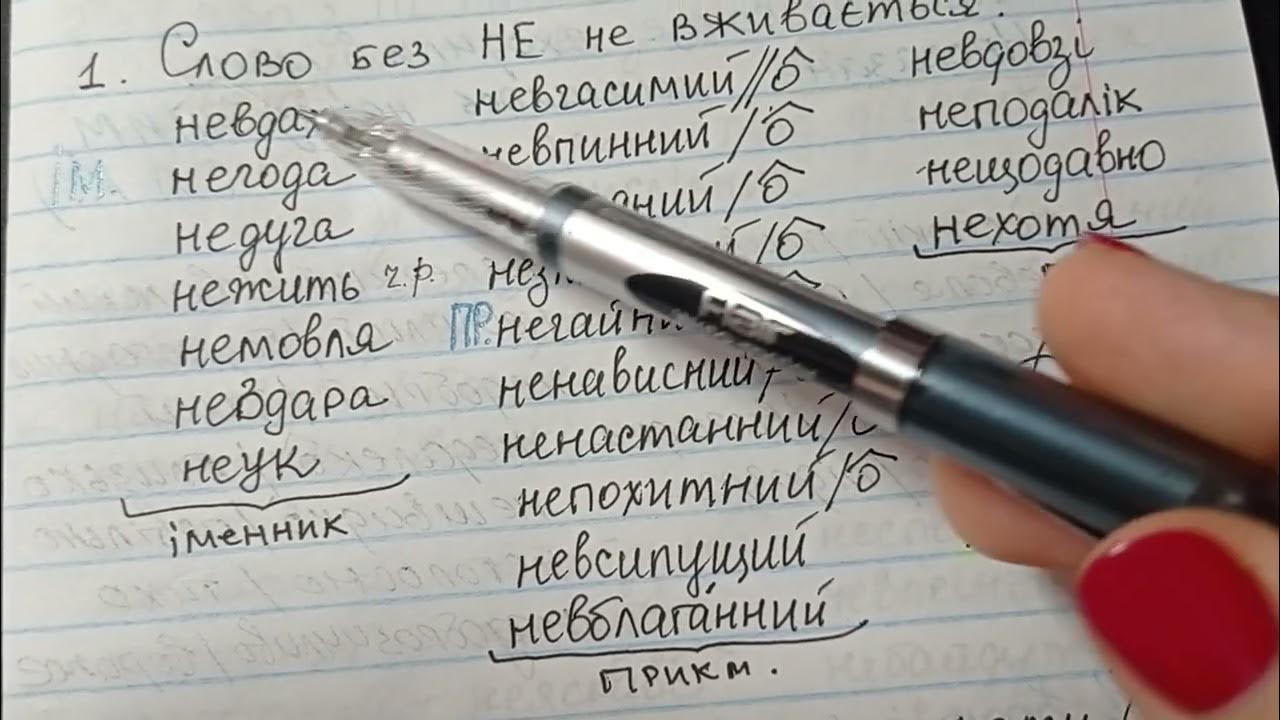 1. Слово без НЕ не вживається.
невдах
ім.
негода
недуга
нежить ч.р.
немовля
невдара
неук
іменник
невгасимий//о̂
невпинний/о̂
/о̂
/о̂
пр.
ненависний
ненастанний/
непохитний/о̂
невсипущий
невблага́нний
прикм.
невдовзі
неподалік
нещодавно
нехотя